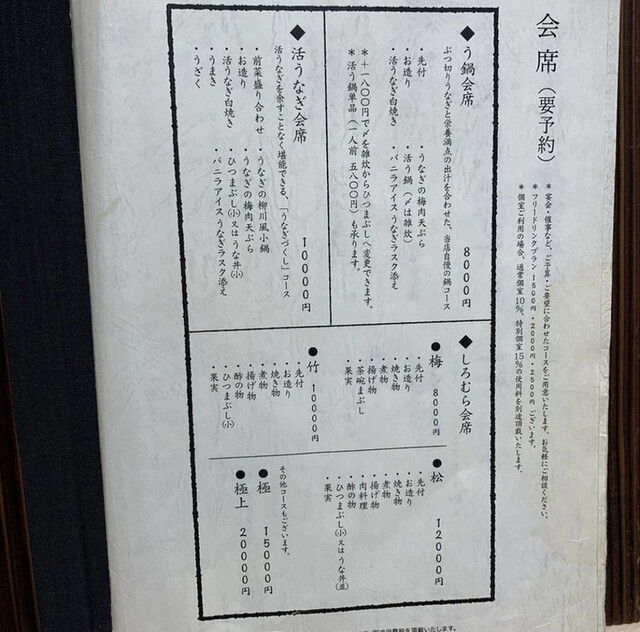 会席（要予約）
＊宴会・催事など、ご予算・ご要望に合わせたコースをご用意いたします。お気軽にご相談ください。
＊フリードリンクプラン 1500円・2000円・2500円 ございます。
＊個室ご利用の場合、通常個室10％、特別個室15％の使用料を別途頂戴いたします。
◆う鍋会席
ぶつ切りうなぎと栄養満点の出汁を合わせた、当店自慢の鍋コース
8000円
・先付
・お造り
・活うなぎ白焼き
・うなぎの梅肉天ぷら
・活う鍋（〆は雑炊）
・バニラアイスうなぎラスク添え
＊＋一八〇〇円で〆を雑炊からひつまぶしへ変更できます。
＊活う鍋単品（一人前 五八〇〇円）も承ります。
◆活うなぎ会席
活うなぎを余すことなく堪能できる、「うなぎづくし」コース
10000円
・前菜盛り合わせ
・お造り
・活うなぎ白焼き
・うまき
・うざく
・うなぎの柳川風小鍋
・うなぎの梅肉天ぷら
・ひつまぶし（小）又はうな丼（小）
・バニラアイスうなぎラスク添え
◆しろむら会席
●梅 8000円
・先付
・お造り
・焼き物
・煮物
・揚げ物
・茶碗まぶし
・果実
●竹 10000円
・先付
・お造り
・焼き物
・煮物
・揚げ物
・酢の物
・ひつまぶし（小）
・果実
●松 12000円
・先付
・お造り
・焼き物
・煮物
・揚げ物
・肉料理
・酢の物
・ひつまぶし（小）又はうな丼（並）
・果実
その他コースもございます。
●極 15000円
●極上 20000円